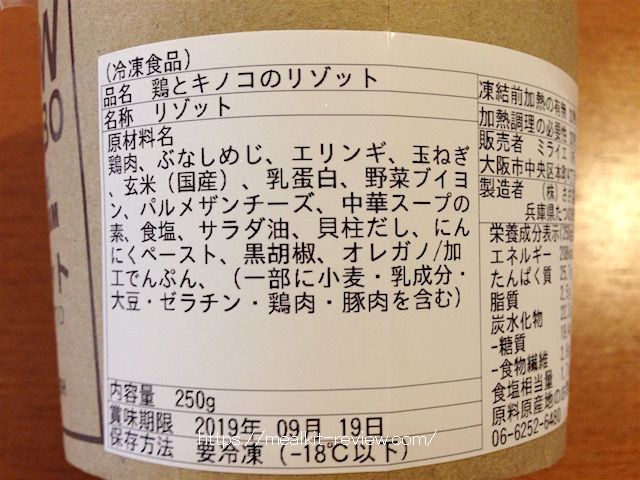 (冷凍食品)
品名 鶏とキノコのリゾット
名称 リゾット
原材料名
鶏肉、ぶなしめじ、エリンギ、玉ねぎ
、玄米(国産)、乳蛋白、野菜ブイヨ
ン、パルメザンチーズ、中華スープの
素、食塩、サラダ油、貝柱だし、にん
にくペースト、黒胡椒、オレガノ/加
工でんぷん、(一部に小麦・乳成分・
大豆・ゼラチン・鶏肉・豚肉を含む)
内容量 250g
賞味期限 2019年 09月 19日
保存方法 要冷凍(-18℃以下)
https://mealkit-review.com/
凍結前加熱の有無
加熱調理の必要性
販売者 ミライエ
大阪市中央区本
製造者 (株)
兵庫県たつの
栄養成分表示
エネルギー
たんぱく質
脂質
炭水化物
-糖質
-食物繊維
食塩相当量
原料原産地のお
06-6252-6480